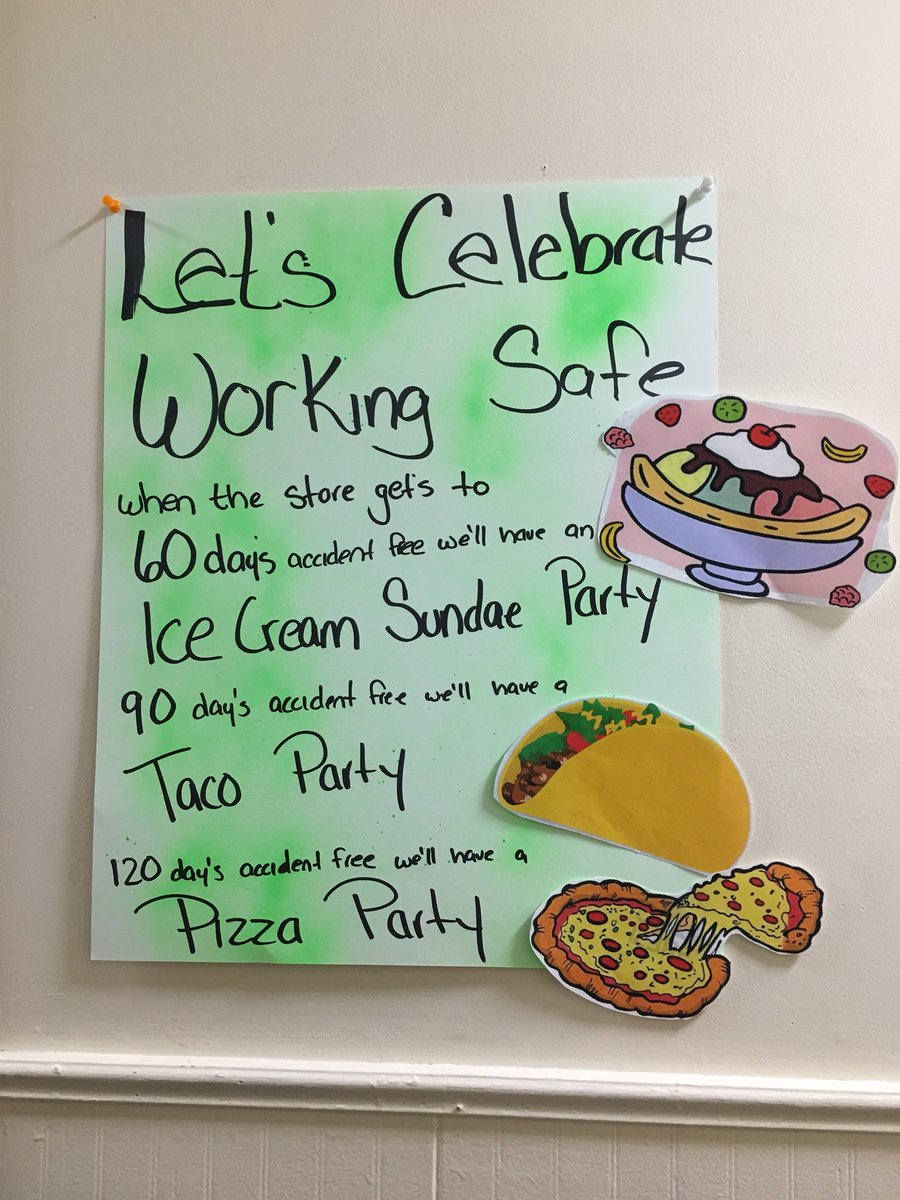 Let's Celebrate
Working Safe
when the store get's to
60 day's accident free we'll have an
Ice Cream Sundae Party
90 day's accident free we'll have a
Taco Party
120 day's accident free we'll have a
Pizza Party